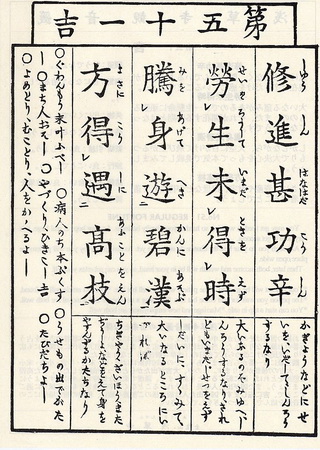 第五十一吉
修進甚功辛
しゆうしんはなはだこうしん
勞生未得時
せいをらうしていまだときをえず
騰身遊碧漢
みをあげてへきかんにあそぶ
方得遇高枝
まさにこうしにあふことをえん
かぎょうなどにせ
いをいだしてしんろう
するなり
大いなるのぞみゆへし
んろうするなりされ
どもいまだじせつをえず
しだいに、すゝみて、
大いなるところにい
づれば
身を
やすんずるかたちなり
○ぐわんもう末叶ふべし ○病人のち本ぷくす ○うせもの出でがた
し ○まち人おそし ○やづくり、ひきこし吉 ○たびだちよし
○よめとり、むことり、人をかゝへるよし